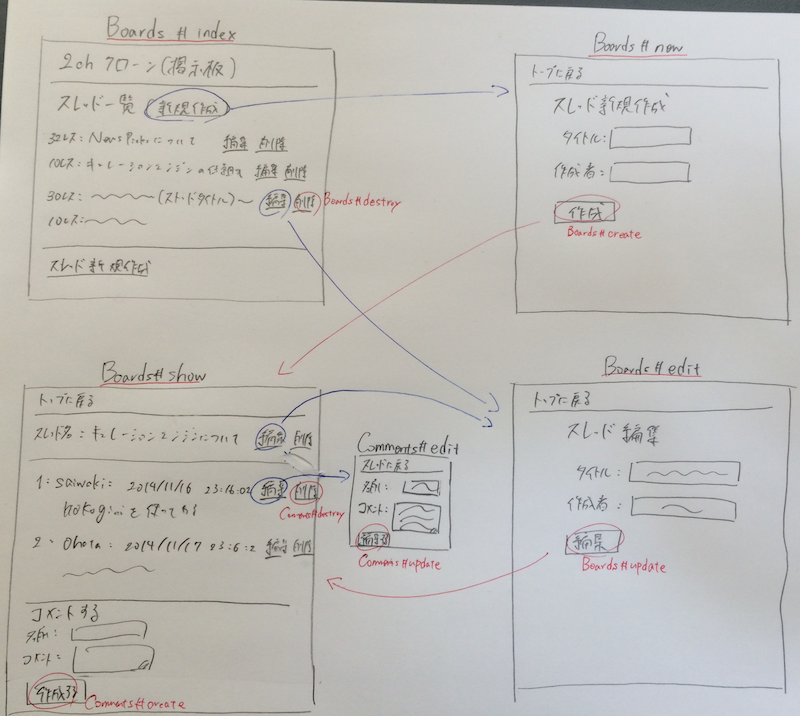 Boards#index
2ch クローン(掲示板)
スレッド一覧 (新規作成)
32レス: NewsPicksについて 編集 削除
10レス: キュレーションエンジンの仕組み 編集 削除
30レス: (スレッドタイトル) 編集 削除 Boards#destroy
10レス:
スレッド新規作成
Boards#new
トップに戻る
スレッド新規作成
タイトル:
作成者:
作成
Boards#create
Boards#show
トップに戻る
スレッド名: キュレーションエンジンについて 編集 削除
1: saiwaki: 2014/11/16 23:16:02 編集 削除
Comments#destroy
nokogiriを使ってる
2: Ohota: 2014/11/17 23:6:2 編集 削除
コメントする
名前:
コメント:
作成する
Comments#create
Comments#edit
スレッドに戻る
名前:
コメント:
編集する
Comments#update
Boards#edit
トップに戻る
スレッド編集
タイトル:
作成者:
編集
Boards#update